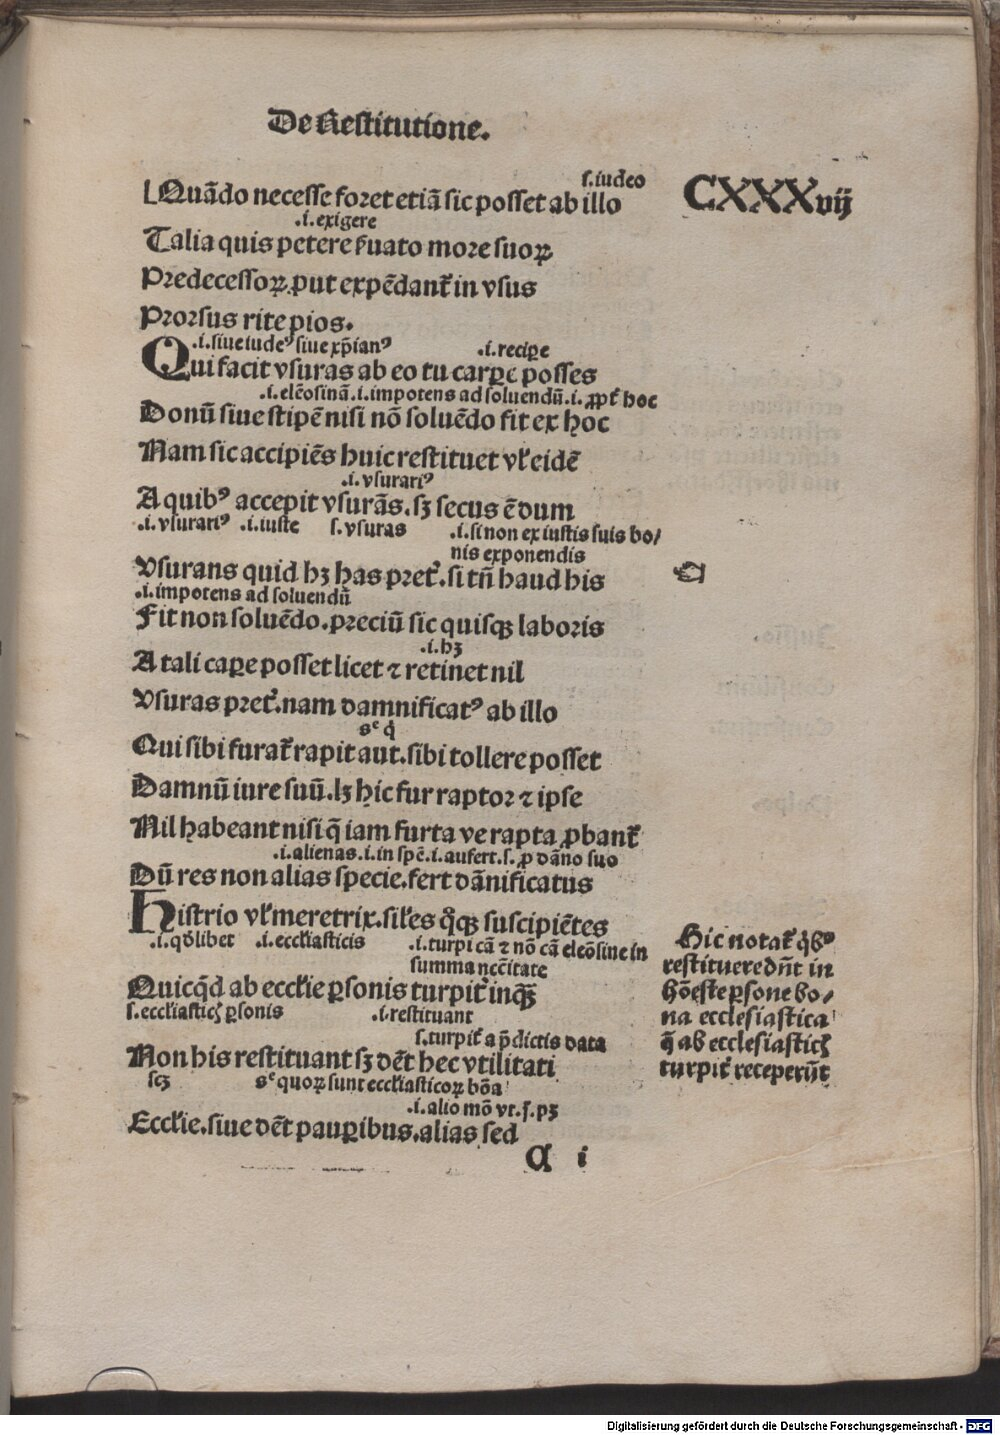 De Restitutione.
CXXXvij
s.iudeo
Quãdo necesse foret etiã sic posset ab illo
.i.exigere
Talia quis petere ſuato more suoꝝ
Predecessoꝝ.put expẽdant᷑ in vsus
Prorsus rite pios.
.i.siue iudeꝰ siue xp̃ianꝰ .i.recipe
Qui facit vsuras ab eo tu carꝑe posses
.i.elẽosinã.i.impotens ad soluendũ.i.ꝓpt᷑ hoc
Donũ siue stipẽ nisi nõ soluẽdo fit ex hoc
Nam sic accipiẽs huic restituet vl̕ eidẽ
.i.vsurariꝰ
A quibꝰ accepit vsurãs.sꝫ secus ẽ dum
.i.vsurariꝰ .i.iuste s.vsuras .i.si non ex iustis suis bo/
nis exponendis
Vsurans quid hꝫ has pret᷑.si tñ haud his
.i.impotens ad soluendũ
Fit non soluẽdo.preciũ sic quisqꝫ laboris
.i.hꝫ
A tali caꝑe posset licet ⁊ retinet nil
Vsuras pret᷑.nam damnificatꝰ ab illo
sᶜ q̇
Qui sibi furat᷑ rapit aut.sibi tollere posset
Damnũ iure suũ.lꝫ hic fur raptor ⁊ ipse
Nil habeant nisi q̃ iam furta ve rapta ꝓbant᷑
.i.alienas.i.in spẽ.i.aufert.s.ꝓ dãno suo
Dũ res non alias specie.fert dãnificatus
Histrio vl̕ meretrix.sil̕es q̊qꝫ suscipiẽtes
.i.qđlibet .i.eccl̕iasticis .i.turpi cã ⁊ nõ cã eleõsine in
summa nccĩtate
Quicq̇d ab eccl̕ie ꝑsonis turpit᷑ inqꝫ̃
s.eccl̕iasticꝭ ꝑsonis .i.restituant
s.turpit᷑ a p̃dictis data
Non his restituant sꝫ dẽt hec vtilitati
scꝫ sᶜ quoꝝ sunt eccl̕iasticoꝝ bõa
.i.alio mõ vt.ſ.pꝫ
Eccl̕ie.siue dẽt pauꝑibus.alias sed
Hic notat᷑ q̇bꝰ
restituere dñt in
hõeste ꝑsone bo/
na ecclesiastica
q̃ ab ecclesiasticꝭ
turpit᷑ receperũt
A i
Digitalisierung gefördert durch die Deutsche Forschungsgemeinschaft - DFG